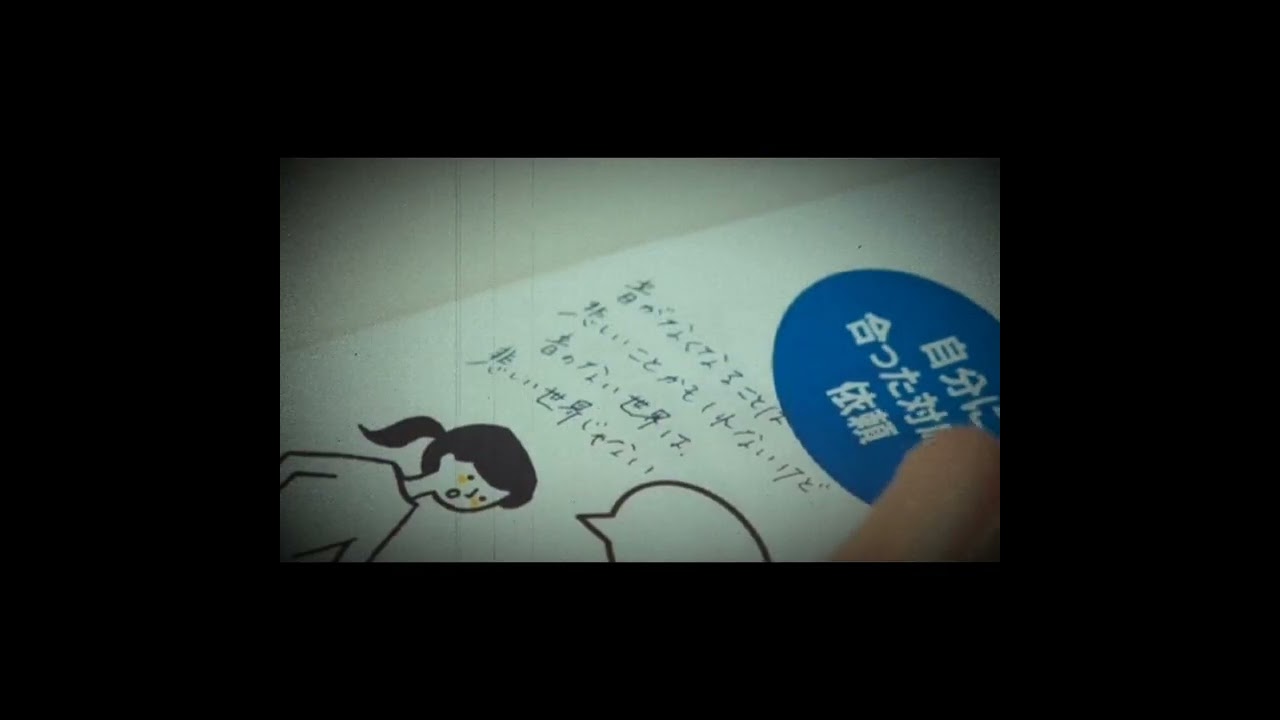 音がなくなることは
悲しいことかもしれないけど
音のない世界は、
悲しい世界じゃない
自分に
合った対
依頼